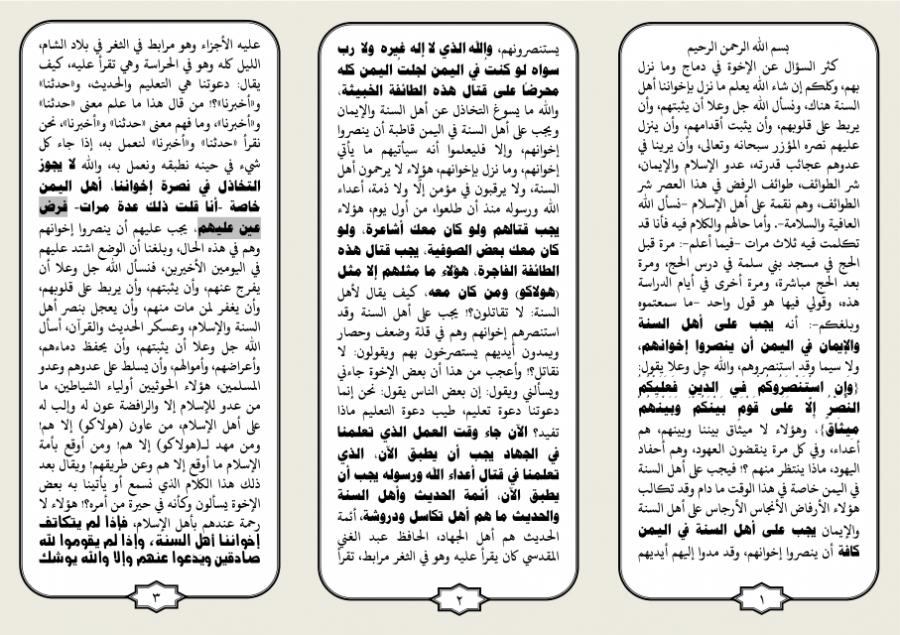 بسم الله الرحمن الرحيم
كثر السؤال عن الإخوة في دماج وما نزل
بهم، وكلكم إن شاء الله يعلم ما نزل بإخواننا أهل
السنة هناك، ونسأل الله جل وعلا أن يثبتهم، وأن
يربط على قلوبهم، وأن يثبت أقدامهم، وأن ينزل
عليهم نصره المؤزر سبحانه وتعالى، وأن يرينا في
عدوهم عجائب قدرته، عدو الإسلام والإيمان،
شر الطوائف، طوائف الرفض في هذا العصر شر
الطوائف، وهم نقمة على أهل الإسلام -نسأل الله
العافية والسلامة-. وأما حالهم والكلام فيه فأنا قد
تكلمت فيه ثلاث مرات -فيما أعلم-: مرة قبل
الحج في مسجد بني سلمة في درس الحج، ومرة
بعد الحج مباشرة، ومرة أخرى في أيام الدراسة
هذه، وقولي فيها هو قول واحد -ما سمعتموه
وبلغكم-: أنه يجب على أهل السنة
والإيمان في اليمن أن ينصروا إخوانهم،
ولا سيما وقد استنصروهم، والله جل وعلا يقول:
{وإن استنصروكم في الدين فعليكم
النصر إلا على قوم بينكم وبينهم
ميثاق}، وهؤلاء لا ميثاق بيننا وبينهم، هم
أعداء، وفي كل مرة ينقضون العهود، وهم أحفاد
اليهود، ماذا ينتظر منهم ؟! فيجب على أهل السنة
في اليمن خاصة في هذا الوقت ما دام وقد تكالب
هؤلاء الأرفاض الأنجاس الأرجاس على أهل السنة
والإيمان يجب على أهل السنة في اليمن
كافة أن ينصروا إخوانهم، وقد مدوا إليهم أيديهم
١
يستنصرونهم، والله الذي لا إله غيره ولا رب
سواه لو كنت في اليمن لجلت اليمن كله
محرضا على قتال هذه الطائفة الخبيثة،
والله ما يسوغ التخاذل عن أهل السنة والإيمان
ويجب على أهل السنة في اليمن قاطبة أن ينصروا
إخوانهم، وإلا فليعلموا أنه سيأتيهم ما يأتي
إخوانهم، وما نزل بإخوانهم، هؤلاء لا يرحمون أهل
السنة، ولا يرقبون في مؤمن إلًّا ولا ذمة، أعداء
الله ورسوله منذ أن طلعوا، من أول يوم، هؤلاء
يجب قتالهم ولو كان معك أشاعرة، ولو
كان معك بعض الصوفية، يجب قتال هذه
الطائفة الفاجرة، هؤلاء ما مثلهم إلا مثل
(هولاكو) ومن كان معه، كيف يقال لأهل
السنة: لا تقاتلون؟! يجب على أهل السنة وقد
استنصرهم إخوانهم وهم في قلة وضعف وحصار
ويمدون أيديهم يستصرخون بهم ويقولون: لا
نقاتل؟! وأعجب من هذا أن بعض الإخوة جاءني
ويسألني ويقول: إن بعض الناس يقول: نحن إنما
دعوتنا دعوة تعليم، طيب دعوة التعليم ماذا
تفيد؟ الآن جاء وقت العمل الذي تعلمنا
في الجهاد يجب أن يطبق الآن، الذي
تعلمنا في قتال أعداء الله ورسوله يجب أن
يطبق الآن، أئمة الحديث وأهل السنة
والحديث ما هم أهل تكاسل ودروشة، أئمة
الحديث هم أهل الجهاد، الحافظ عبد الغني
المقدسي كان يقرأ عليه وهو في الثغر مرابط، تقرأ
٢
عليه الأجزاء وهو مرابط في الثغر في بلاد الشام،
الليل كله وهو في الحراسة وهي تقرأ عليه، كيف
يقال: دعوتنا هي التعليم والحديث، و«حدثنا»
و«أخبرنا»؟! من قال هذا ما علم معنى «حدثنا»
و«أخبرنا»، وما فهم معنى «حدثنا» و«أخبرنا»، نحن
نقرأ «حدثنا» و«أخبرنا» لنعمل به، إذا جاء كل
شيء في حينه نطبقه ونعمل به، والله لا يجوز
التخاذل في نصرة إخواننا، أهل اليمن
خاصة -أنا قلت ذلك عدة مرات- فرض
عين عليهم، يجب عليهم أن ينصروا إخوانهم
وهم في هذه الحال، وبلغنا أن الوضع اشتد عليهم
في اليومين الأخيرين، فنسأل الله جل وعلا أن
يفرج عنهم، وأن يثبتهم، وأن يربط على قلوبهم،
وأن يغفر لمن مات منهم، وأن يعجل بنصر أهل
السنة والإسلام، وعسكر الحديث والقرآن، أسأل
الله جل وعلا أن يثبتهم، وأن يحفظ دماءهم،
وأعراضهم، وأموالهم، وأن يسلط على عدوهم وعدو
المسلمين، هؤلاء الحوثيين أولياء الشياطين، ما
من عدو للإسلام إلا والرافضة عون له وإلب له
على أهل الإسلام، من عاون (هولاكو) إلا هم!
ومن مهد لـ(هولاكو) إلا هم! ومن أوقع بأمة
الإسلام ما أوقع إلا هم وعن طريقهم! ويقال بعد
ذلك هذا الكلام الذي نسمع أو يأتينا به بعض
الإخوة يسألون وكأنه في حيرة من أمره؟! هؤلاء لا
رحمة عندهم بأهل الإسلام، فإذا لم يتكاتف
إخواننا أهل السنة، وإذا لم يقوموا لله
صادقين ويدعوا عنهم وإلا والله يوشك
٣